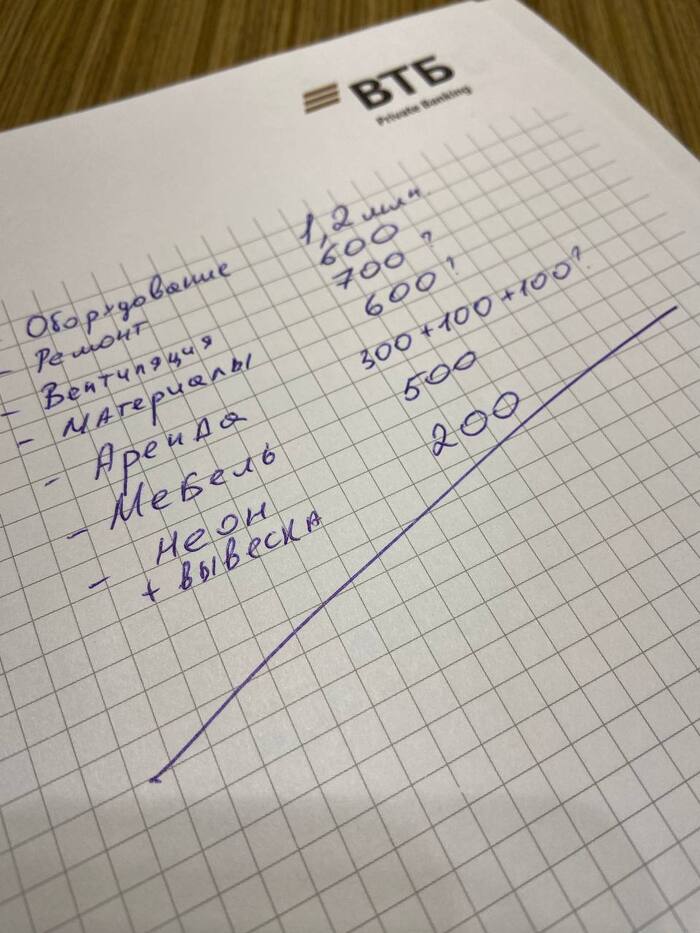 ВТБ
Private Banking
- Оборудование 1,2 млн.
- Ремонт 600
- Вентиляция 700?
- Материалы 600?
- Аренда 300+100+100?
- Мебель 500
- Неон 200
+ вывеска